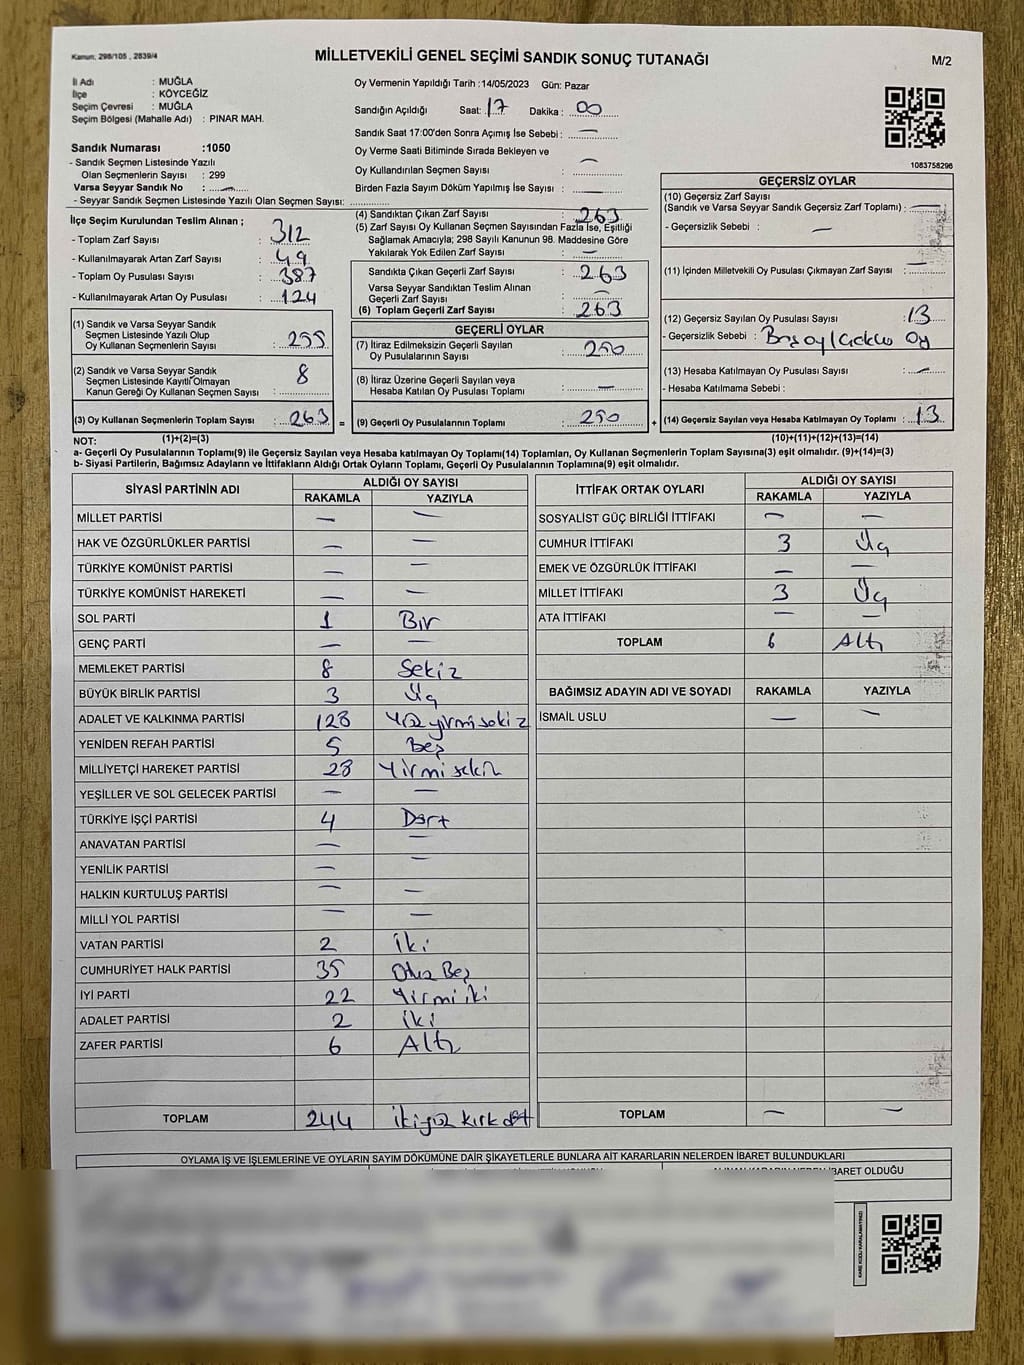 Kanun: 298/105 , 2839/4
MİLLETVEKİLİ GENEL SEÇİMİ SANDIK SONUÇ TUTANAĞI
M/2
İl Adı : MUĞLA
İlçe : KÖYCEĞİZ
Seçim Çevresi : MUĞLA
Seçim Bölgesi (Mahalle Adı) : PINAR MAH.
Sandık Numarası :1050
- Sandık Seçmen Listesinde Yazılı
Olan Seçmenlerin Sayısı : 299
Varsa Seyyar Sandık No : —
- Seyyar Sandık Seçmen Listesinde Yazılı Olan Seçmen Sayısı:
Oy Vermenin Yapıldığı Tarih :14/05/2023 Gün: Pazar
Sandığın Açıldığı Saat: 17 Dakika : 00
Sandık Saat 17:00'den Sonra Açımış İse Sebebi : —
Oy Verme Saati Bitiminde Sırada Bekleyen ve
Oy Kullandırılan Seçmen Sayısı : —
Birden Fazla Sayım Döküm Yapılmış İse Sayısı : —
1083758296
İlçe Seçim Kurulundan Teslim Alınan ;
- Toplam Zarf Sayısı : 312
- Kullanılmayarak Artan Zarf Sayısı : 49
- Toplam Oy Pusulası Sayısı : 387
- Kullanılmayarak Artan Oy Pusulası : 124
(1) Sandık ve Varsa Seyyar Sandık
Seçmen Listesinde Yazılı Olup
Oy Kullanan Seçmenlerin Sayısı : 255
(2) Sandık ve Varsa Seyyar Sandık
Seçmen Listesinde Kayıtlı Olmayan
Kanun Gereği Oy Kullanan Seçmen Sayısı : 8
(3) Oy Kullanan Seçmenlerin Toplam Sayısı : 263 =
(1)+(2)=(3)
(4) Sandıktan Çıkan Zarf Sayısı : 263
(5) Zarf Sayısı Oy Kullanan Seçmen Sayısından Fazla İse, Eşitliği
Sağlamak Amacıyla; 298 Sayılı Kanunun 98. Maddesine Göre
Yakılarak Yok Edilen Zarf Sayısı : —
Sandıkta Çıkan Geçerli Zarf Sayısı : 263
Varsa Seyyar Sandıktan Teslim Alınan
Geçerli Zarf Sayısı : —
(6) Toplam Geçerli Zarf Sayısı : 263
GEÇERLİ OYLAR
(7) İtiraz Edilmeksizin Geçerli Sayılan
Oy Pusulalarının Sayısı : 250
(8) İtiraz Üzerine Geçerli Sayılan veya
Hesaba Katılan Oy Pusulası Toplamı : —
(9) Geçerli Oy Pusulalarının Toplamı : 250 +
GEÇERSİZ OYLAR
(10) Geçersiz Zarf Sayısı
(Sandık ve Varsa Seyyar Sandık Geçersiz Zarf Toplamı) : —
- Geçersizlik Sebebi : —
(11) İçinden Milletvekili Oy Pusulası Çıkmayan Zarf Sayısı : —
(12) Geçersiz Sayılan Oy Pusulası Sayısı : 13
- Geçersizlik Sebebi : Oy
(13) Hesaba Katılmayan Oy Pusulası Sayısı : —
- Hesaba Katılmama Sebebi :
(14) Geçersiz Sayılan veya Hesaba Katılmayan Oy Toplamı : 13
(10)+(11)+(12)+(13)=(14)
NOT:
a- Geçerli Oy Pusulalarının Toplamı(9) ile Geçersiz Sayılan veya Hesaba katılmayan Oy Toplamı(14) Toplamları, Oy Kullanan Seçmenlerin Toplam Sayısına(3) eşit olmalıdır. (9)+(14)=(3)
b- Siyasi Partilerin, Bağımsız Adayların ve İttifakların Aldığı Ortak Oyların Toplamı, Geçerli Oy Pusulalarının Toplamına(9) eşit olmalıdır.
SİYASİ PARTİNİN ADI
ALDIĞI OY SAYISI
RAKAMLA YAZIYLA
MİLLET PARTİSİ — —
HAK VE ÖZGÜRLÜKLER PARTİSİ — —
TÜRKİYE KOMÜNİST PARTİSİ — —
TÜRKİYE KOMÜNİST HAREKETİ — —
SOL PARTİ 1 Bir
GENÇ PARTİ — —
MEMLEKET PARTİSİ 8 Sekiz
BÜYÜK BİRLİK PARTİSİ 3 Üç
ADALET VE KALKINMA PARTİSİ 128 Yüzyirmisekiz
YENİDEN REFAH PARTİSİ 5 Beş
MİLLİYETÇİ HAREKET PARTİSİ 28 Yirmisekiz
YEŞİLLER VE SOL GELECEK PARTİSİ — —
TÜRKİYE İŞÇİ PARTİSİ 4 Dört
ANAVATAN PARTİSİ — —
YENİLİK PARTİSİ — —
HALKIN KURTULUŞ PARTİSİ — —
MİLLİ YOL PARTİSİ — —
VATAN PARTİSİ 2 İki
CUMHURİYET HALK PARTİSİ 35 Otuz Beş
İYİ PARTİ 22 Yirmi iki
ADALET PARTİSİ 2 iki
ZAFER PARTİSİ 6 Altı
TOPLAM 244 ikiyüz kırk dört
İTTİFAK ORTAK OYLARI
ALDIĞI OY SAYISI
RAKAMLA YAZIYLA
SOSYALİST GÜÇ BİRLİĞİ İTTİFAKI — —
CUMHUR İTTİFAKI 3 Üç
EMEK VE ÖZGÜRLÜK İTTİFAKI — —
MİLLET İTTİFAKI 3 Üç
ATA İTTİFAKI — —
TOPLAM 6 Altı
BAĞIMSIZ ADAYIN ADI VE SOYADI RAKAMLA YAZIYLA
İSMAİL USLU — —
TOPLAM — —
OYLAMA İŞ VE İŞLEMLERİNE VE OYLARIN SAYIM DÖKÜMÜNE DAİR ŞİKAYETLERLE BUNLARA AİT KARARLARIN NELERDEN İBARET BULUNDUKLARI
İBARET OLDUĞU
KARE KODU KARALAMAYINIZ!